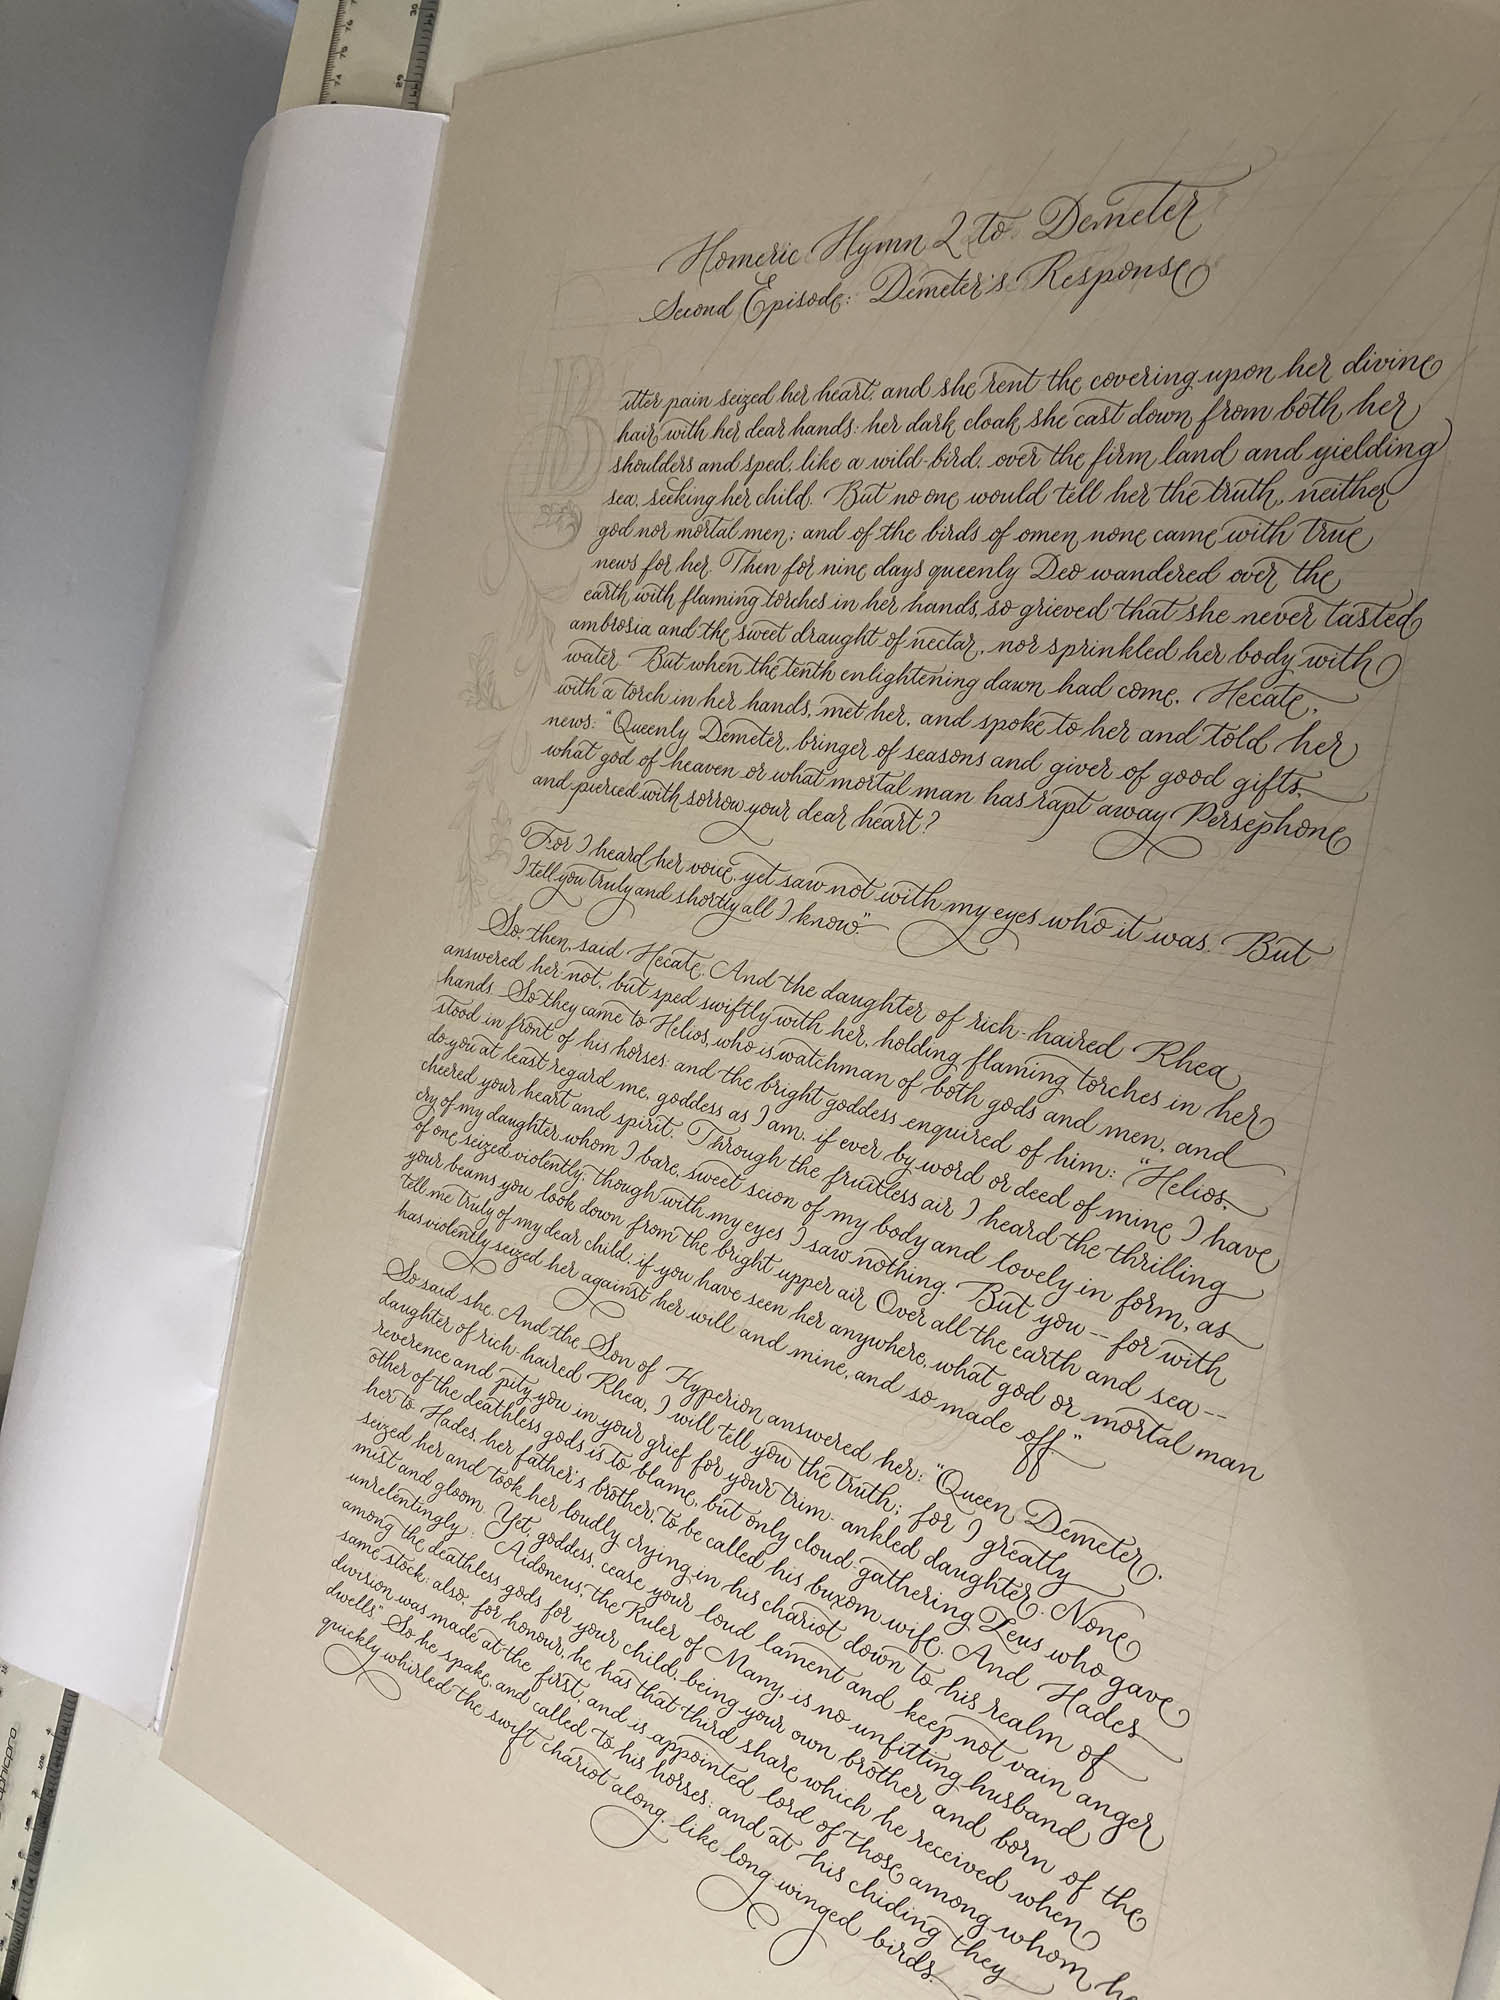 Homeric Hymn 2 to Demeter
Second Episode: Demeter's Response
Bitter pain seized her heart, and she rent the covering upon her divine
hair with her dear hands: her dark cloak she cast down from both her
shoulders and sped, like a wild-bird, over the firm land and yielding
sea, seeking her child. But no one would tell her the truth, neither
god nor mortal men; and of the birds of omen none came with true
news for her. Then for nine days queenly Deo wandered over the
earth with flaming torches in her hands, so grieved that she never tasted
ambrosia and the sweet draught of nectar, nor sprinkled her body with
water. But when the tenth enlightening dawn had come, Hecate,
with a torch in her hands, met her, and spoke to her and told her
news: "Queenly Demeter, bringer of seasons and giver of good gifts,
what god of heaven or what mortal man has rapt away Persephone
and pierced with sorrow your dear heart?
For I heard her voice, yet saw not with my eyes who it was. But
I tell you truly and shortly all I know."
So, then, said Hecate. And the daughter of rich-haired Rhea
answered her not, but sped swiftly with her, holding flaming torches in her
hands. So they came to Helios, who is watchman of both gods and men, and
stood in front of his horses: and the bright goddess enquired of him: "Helios,
do you at least regard me, goddess as I am, if ever by word or deed of mine I have
cheered your heart and spirit. Through the fruitless air I heard the thrilling
cry of my daughter whom I bare, sweet scion of my body and lovely in form, as
of one seized violently; though with my eyes I saw nothing. But you -- for with
your beams you look down from the bright upper air Over all the earth and sea --
tell me truly of my dear child, if you have seen her anywhere, what god or mortal man
has violently seized her against her will and mine, and so made off."
So said she. And the Son of Hyperion answered her: "Queen Demeter,
daughter of rich-haired Rhea, I will tell you the truth; for I greatly
reverence and pity you in your grief for your trim-ankled daughter. None
other of the deathless gods is to blame, but only cloud-gathering Zeus who gave
her to Hades, her father's brother, to be called his buxom wife. And Hades
seized her and took her loudly crying in his chariot down to his realm of
mist and gloom. Yet, goddess, cease your loud lament and keep not vain anger
unrelentingly: Aidoneus, the Ruler of Many, is no unfitting husband
among the deathless gods for your child, being your own brother and born of the
same stock: also, for honour, he has that third share which he received when
division was made at the first, and is appointed lord of those among whom he
dwells." So he spake, and called to his horses: and at his chiding they
quickly whirled the swift chariot along, like long-winged birds.